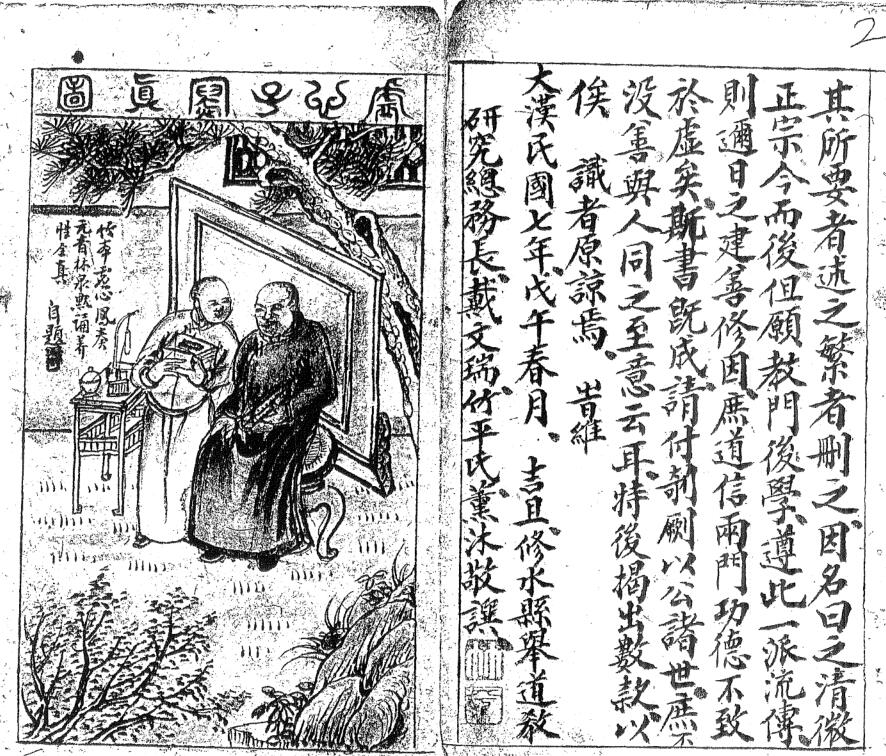 2
其所要者述之繁者刪之因名曰之清微
正宗今而後但願教門後學遵此一派流傳
則邇日之建善修因庶道信兩門功德不致
於虛矣斯書既成請付剞劂以公諸世庶不
没善與人同之至意云耳特後揭出數款以
俟 識者原諒焉 旹維
大漢民國七年戊午春月 吉旦修水縣舉道教
研究總務長戴文瑞竹平氏薰沐敬譔
虛心子真圖
虛心風奏
元音林泉默誦養
性全真
自題